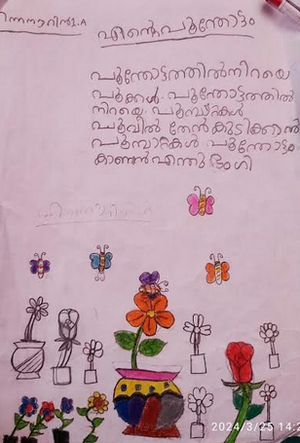 എന്റെ പൂന്തോട്ടം
പൂന്തോട്ടത്തിൽ നിറയെ
പൂക്കൾ പൂന്തോട്ടത്തിൽ
നിറയെ പൂമ്പാറ്റകൾ
പൂവിൽ തേൻ കുടിക്കാൻ
പൂമ്പാറ്റകൾ പൂന്തോട്ടം
കാണാൻ എന്തു ഭംഗി
2024/3/25 14:2